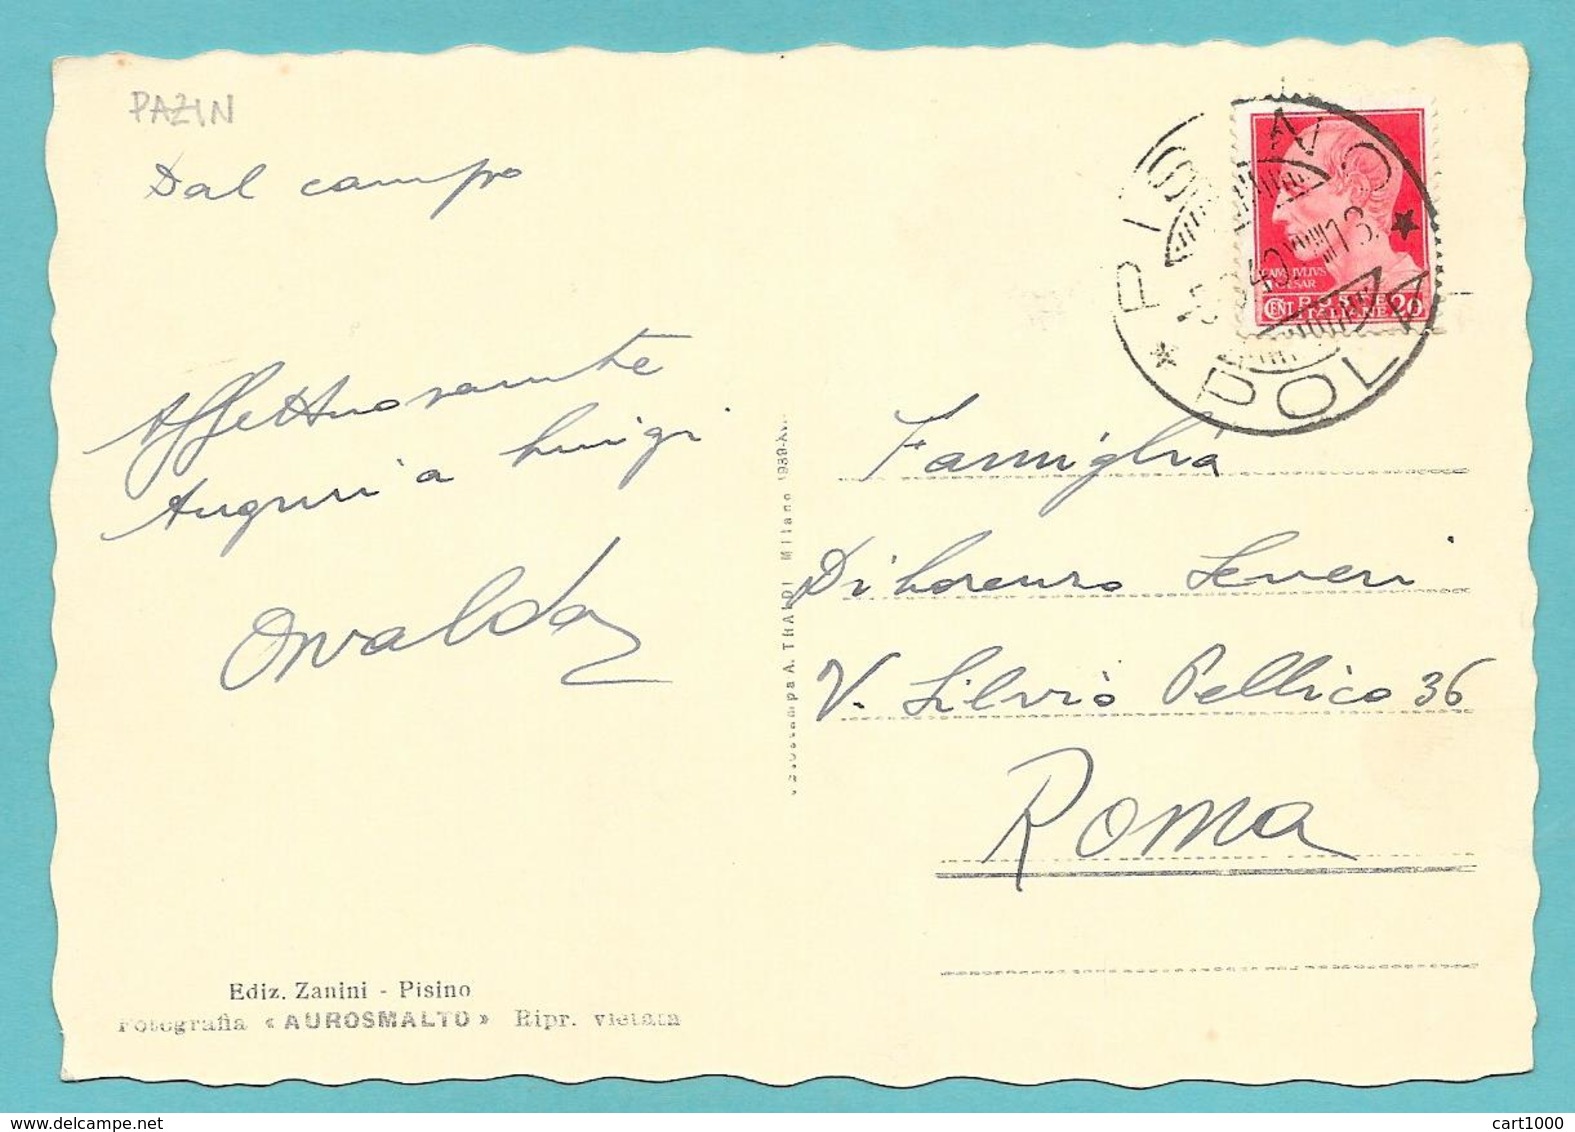 PAZIN
Dal campo
Affettuosamente
Auguri a Luigi
Osvaldo
Ediz. Zanini - Pisino
Fotografia « AUROSMALTO » Ripr. vietata
Fotostampa A. TRALDI Milano 1939-XVII
PISINO
POLA
40.XVIII 13
CAIVS IVLIVS
CAESAR
CENT POSTE 20
ITALIANE
Famiglia
Di Lorenzo Severi
V. Silvio Pellico 36
Roma
cart1000